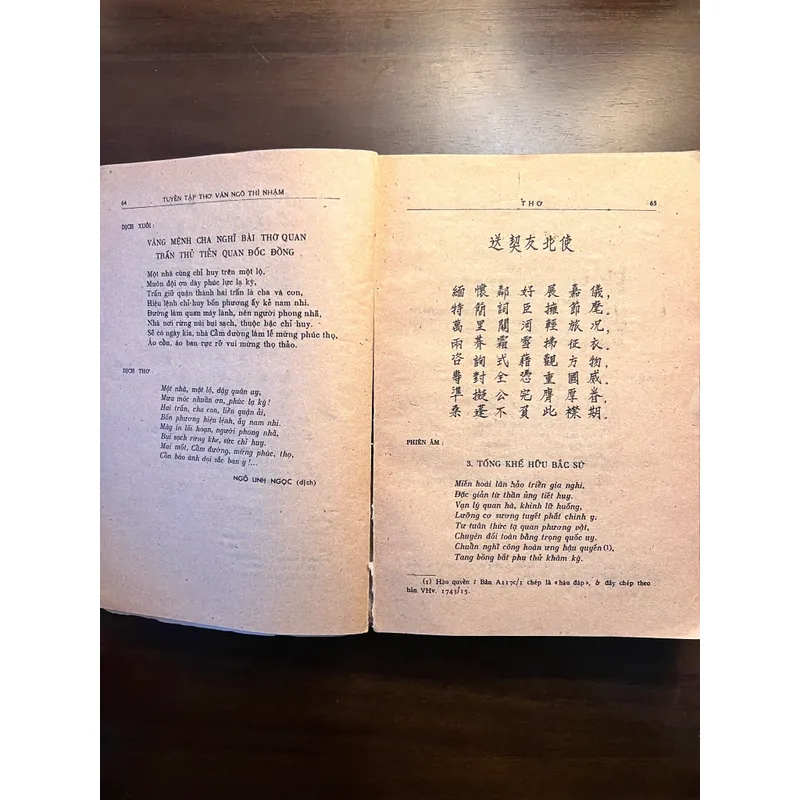 64
TUYỂN TẬP THƠ VĂN NGÔ THÌ NHẬM
DỊCH XUÔI :
VÂNG MỆNH CHA NGHĨ BÀI THƠ QUAN
TRẤN THỦ TIỄN QUAN ĐỐC ĐỒNG
Một nhà cùng chỉ huy trên một lộ,
Muôn đội ơn dày phúc lực lạ kỳ,
Trấn giữ quận thành hai trấn là cha và con,
Hiệu lệnh chỉ huy bốn phương ấy kẻ nam nhi.
Đường làm quan máy lành, nên người phong nhã,
Nhà nơi rừng núi bụi sạch, thuộc bậc chỉ huy.
Sẽ có ngày kia, nhà Cẩm đường làm lễ mừng phúc thọ,
Áo cầu, áo ban rực rỡ vui mừng thọ thảo.
DỊCH THƠ :
Một nhà, một lộ, dậy quân uy,
Mưa móc nhuần ơn, phúc lạ kỳ !
Hai trấn, cha con, liền quận ải,
Bốn phương hiệu lệnh, ấy nam nhi.
Mây in lối hoạn, người phong nhã,
Bụi sạch rừng khe, tức chỉ huy.
Mai mốt, Cẩm đường, mừng phúc, thọ,
Cồn bào ánh dọi sắc ban y !...
NGÔ LINH NGỌC (dịch)
THƠ
65
送契友北使
緬懷鄰好展嘉儀,
特簡詞臣擁節麾.
萬里關河輕旅况,
兩莽霜雪拂征衣.
咨詢式藉觀方物,
專對全憑重國威.
準擬公完膺厚眷,
桑蓬不負此襟期.
PHIÊN ÂM :
3. TỐNG KHẾ HỮU BẮC SỨ
Miễn hoài lân hảo triển gia nghi,
Đặc giản từ thần ủng tiết huy.
Vạn lý quan hà, khinh lữ huống,
Lưỡng cơ sương tuyết phất chinh y.
Tư tuân thức tạ quan phương vật,
Chuyên đối toàn bằng trọng quốc uy.
Chuẩn nghĩ công hoàn ưng hậu quyến (1),
Tang bồng bất phụ thử khâm kỳ.
(1) Hậu quyến : Bản A117c/1 chép là «hậu đáp», ở đây chép theo
bản VHv. 1743/15.